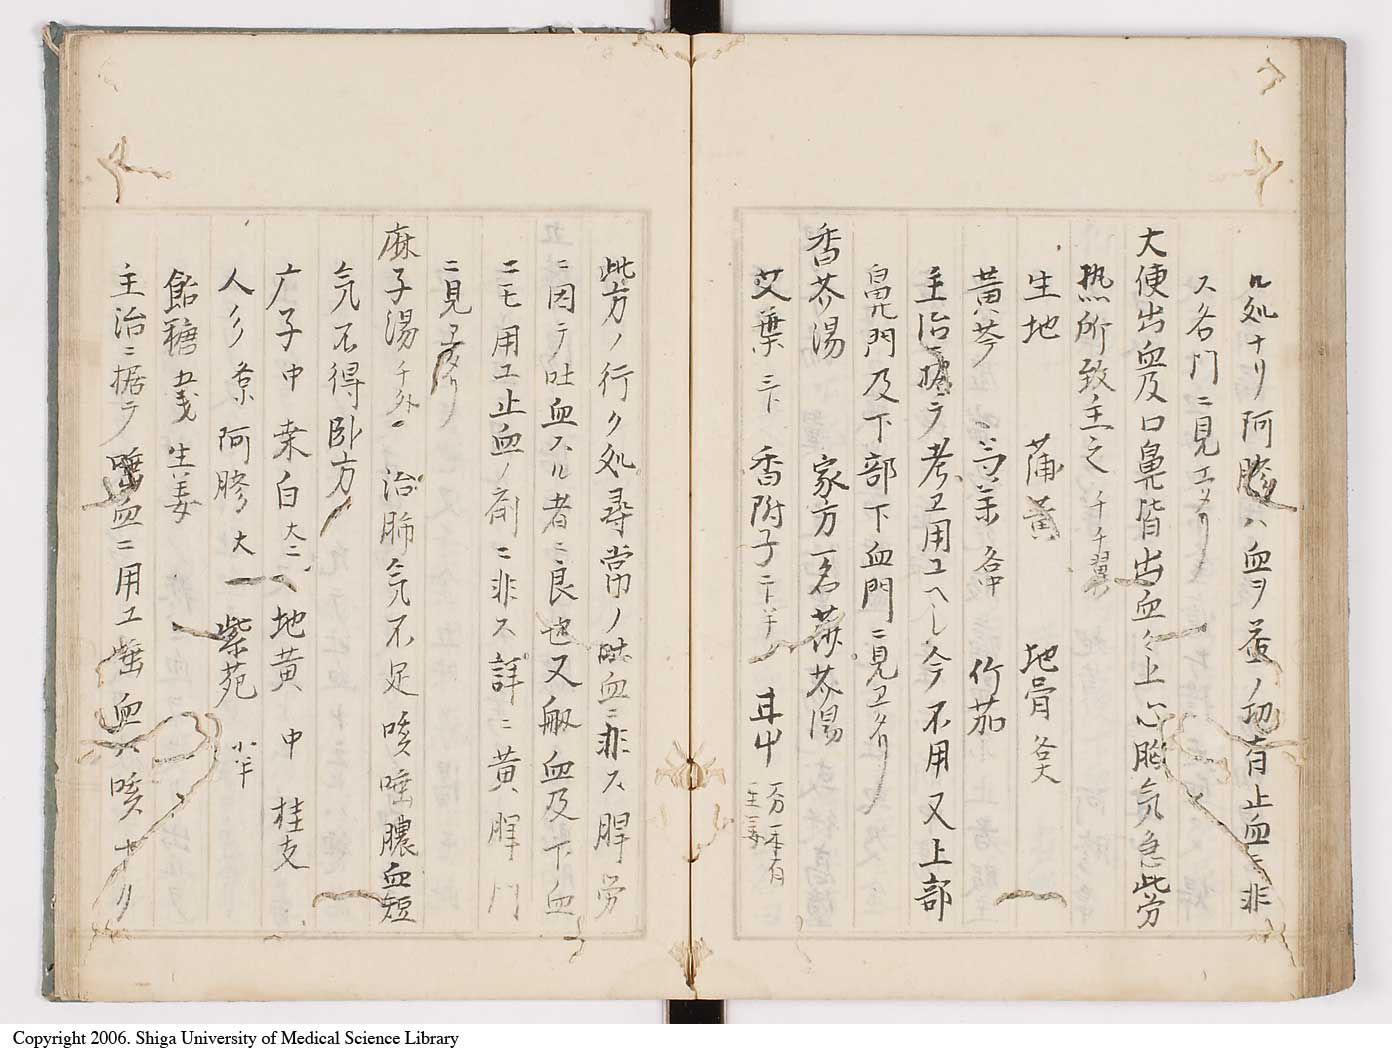 ル処ナリ阿膠ハ血ヲ益ノ功有止血ニ非
ス各門ニ見エタリ
大便出血及口鼻皆出血々上心胸気急此労
熱所致主之 千千翼
生地 蒲黄 地骨 各大
黄芩 芍薬 各中 竹茹
主治ニ據テ考ヱ用ユヘし今不用又上部
鼻門及下部下血門ニ見ヱタリ
香芥湯 家方一名莎芥湯
艾葉 三下 香附子 二下半
此方ノ行ク処尋常ノ吐血ニ非ス脾労
ニ因テ吐血スル者ニ良也又衂血及下血
ニモ用ユ止血ノ剤ニ非ス詳ニ黄脾門
ニ見ヱタリ
麻子湯 千外一 治肺気不足咳唾膿血短
気不得臥方
广子中 桒白 大二 地黄 中 桂支
人参 京 阿膠 大一 紫苑 小半
飴糖 五戔 生姜
主治ニ据テ唾血ニ用ユ 血ハ咳ナリ